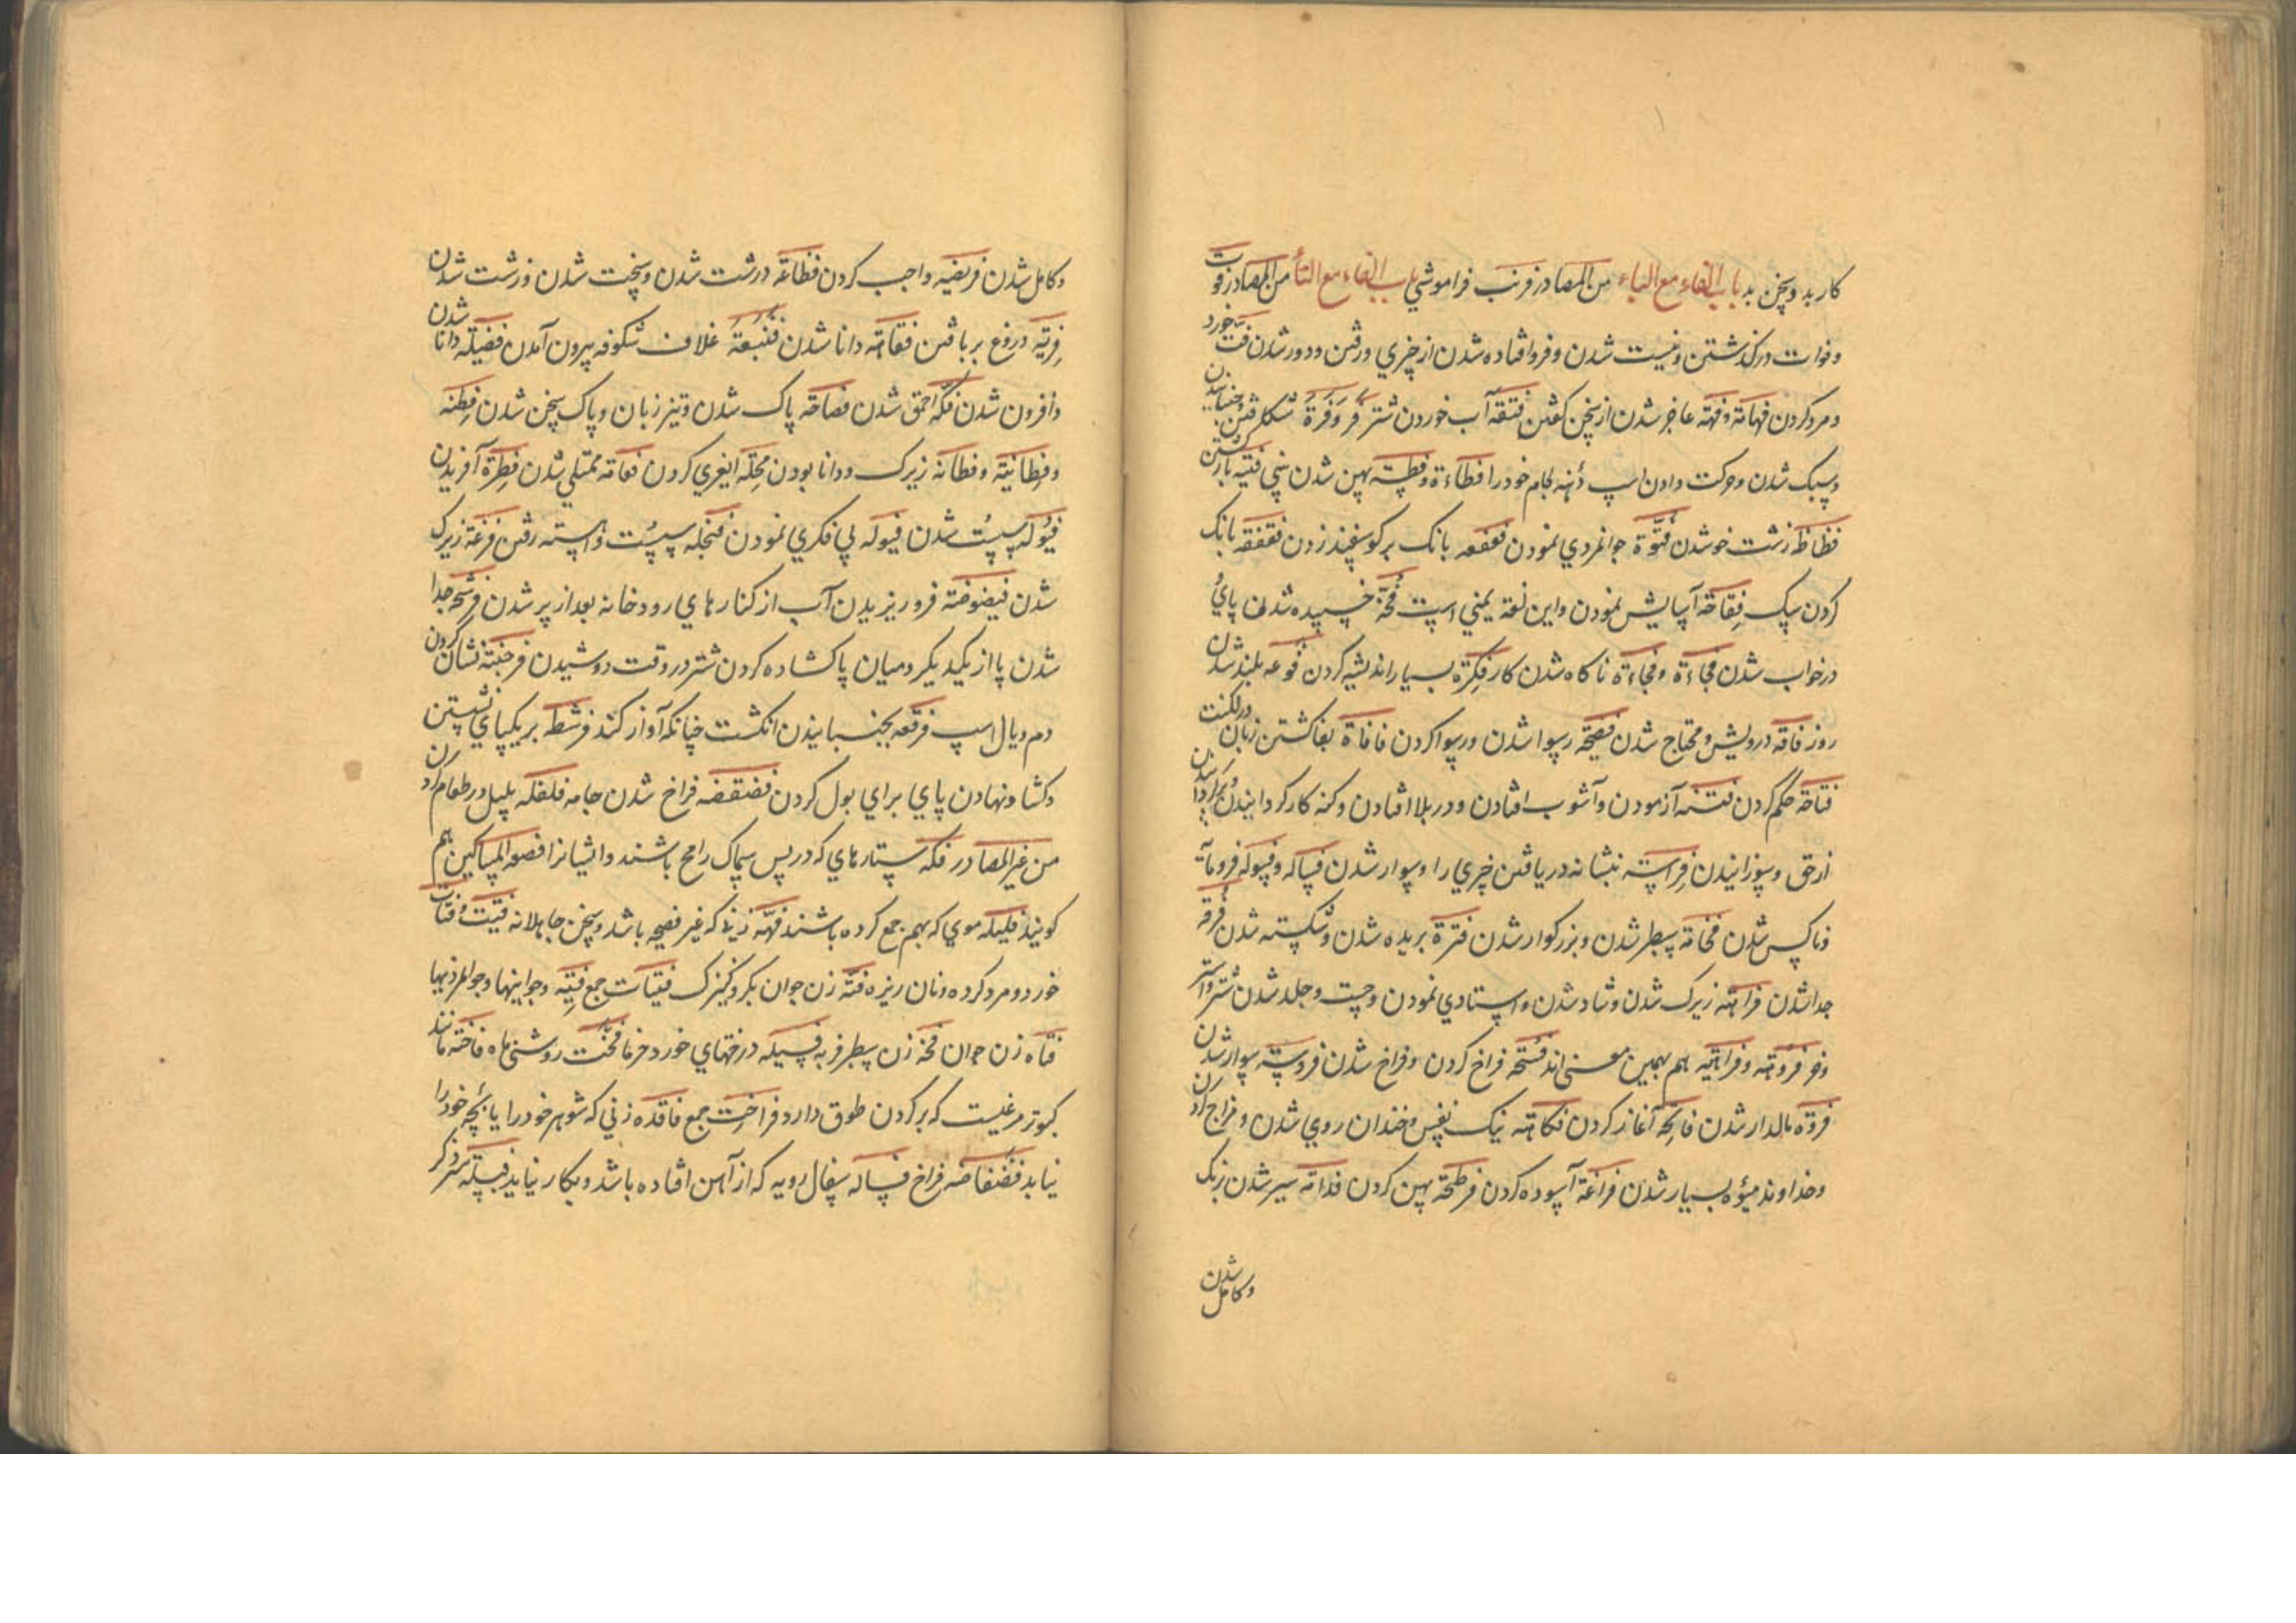 کار بد و سخن بد باب الفاء مع الباء من المصادر فرنب فراموشي باب الفاء مع التأ من المصادر فوت
و فوات درگذشتن و نیست شدن و فرو افتاده شدن از چیزي و رفتن و دور شدن فت خورد
و مرد کردن فهامة و فهة عاجز شدن از سخن گفتن آب خوردن شتر فر و فرة
و سبک شدن و حرکت دادن اسپ دهنه لجام خود را فطاءة و فطسة پهن شدن بيني
فظاظ زشت خو شدن فتوة جوانمردي نمودن فعفعه بانک بر کوسفند زدن فقفقه بانک
کردن سک فقاحة آسایش نمودن و این لغة یمني است فخة خسپیده شدن پاي
در خواب شدن فجاءة و فجاءة ناکاه شدن کار فکرة بسیار اندیشه کردن فوعه بلند شدن
روز فاقه درویش و محتاج شدن فضیحة رسوا شدن و رسوا کردن فافاة بفا کشتن زبان در لکنت
فتاحة حکم کردن فتنه آزمودن و آشوب افتادن و در بلا افتادن و کنه کار کردانیدن
از حق و سوزانیدن فراسته بنشانه دریافتن چیزي را و سوار شدن فساله و فسوله فرومایه
و ناکس شدن فخامة سطبر شدن و بزرکوار شدن فترة بریده شدن و شکسته شدن فرقة
جدا شدن فراهة زیرک شدن و شاد شدن و استادي نمودن و چست و جلد شدن شتر و استر
و خر فروهة و فراهیة هم بهمین معنی اند فسحة فراخ کردن و فراخ شدن فروسة سوار شدن
فروة مالدار شدن فاتحة آغاز کردن فکاهة نیک نفس و خندان روي شدن و مزاح کردن
و خداوند میوه بسیار شدن فراغة آسوده کردن فرطحة پهن کردن فدامة سیر شدن رنک
و کامل شدن
و کامل شدن فریضه واجب کردن فظاعة درشت شدن و سخت شدن و زشت شدن
فریة دروغ بربافتن فقاهة دانا شدن غلاف شکوفه بیرون آمدن فضیله دانا شدن
و افزون شدن فکة احمق شدن فصاحة پاک شدن و تیز زبان و پاک سخن شدن فطنة
و فطانیة و فطانة زیرک و دانا بودن کردن فعامة ممتلي شدن فطرة آفریدن
فیولة سست شدن فیولة بي فکري نمودن فنجلة سست و آهسته رفتن زیرک
شدن فیضوضة فرو ریزیدن آب از کنارهاي رودخانه بعد از پر شدن فرشحة جدا
شدن پا از یکدیکر و میان پا کشاده کردن شتر در وقت دوشیدن فرجنة نشان کردن
دم و یال اسپ فرقعة بجنبانیدن انکشت چنانکه آواز کند فرشط بر یکپاي نشستن
و کشاد و نهادن پاي براي بول کردن فضفضة فراخ شدن جامه فلفلة پلپل در طعام کردن
من غیر المصادر فکة ستارهاي که در پس سماک رامح باشند و ایشانرا قصعة المساکین هم
کویند فلیلة موي که بهم جمع کرده باشند فهة زني که غیر فصیح باشد و سخن جاهلانه فتیت و فتات
خورد و مرد کرده و نان ریزه فتة زن جوان بکر و کنیزک فتیات جمع فتیة و جوانیها و جوانمردیها
فتاه زن جوان فخة زن سطبر فربه فسیلة درختهاي خورد خرما فخت روشنی ماه فاخته مانند
کبوتر مرغیست که بر کردن طوق دارد فراخت جمع فاقده زني که شوهر خود را یا بچه خود را
نیابد فضفاضة فراخ فساله سفال رویه که از آهن افتاده باشد و بکار نیاید